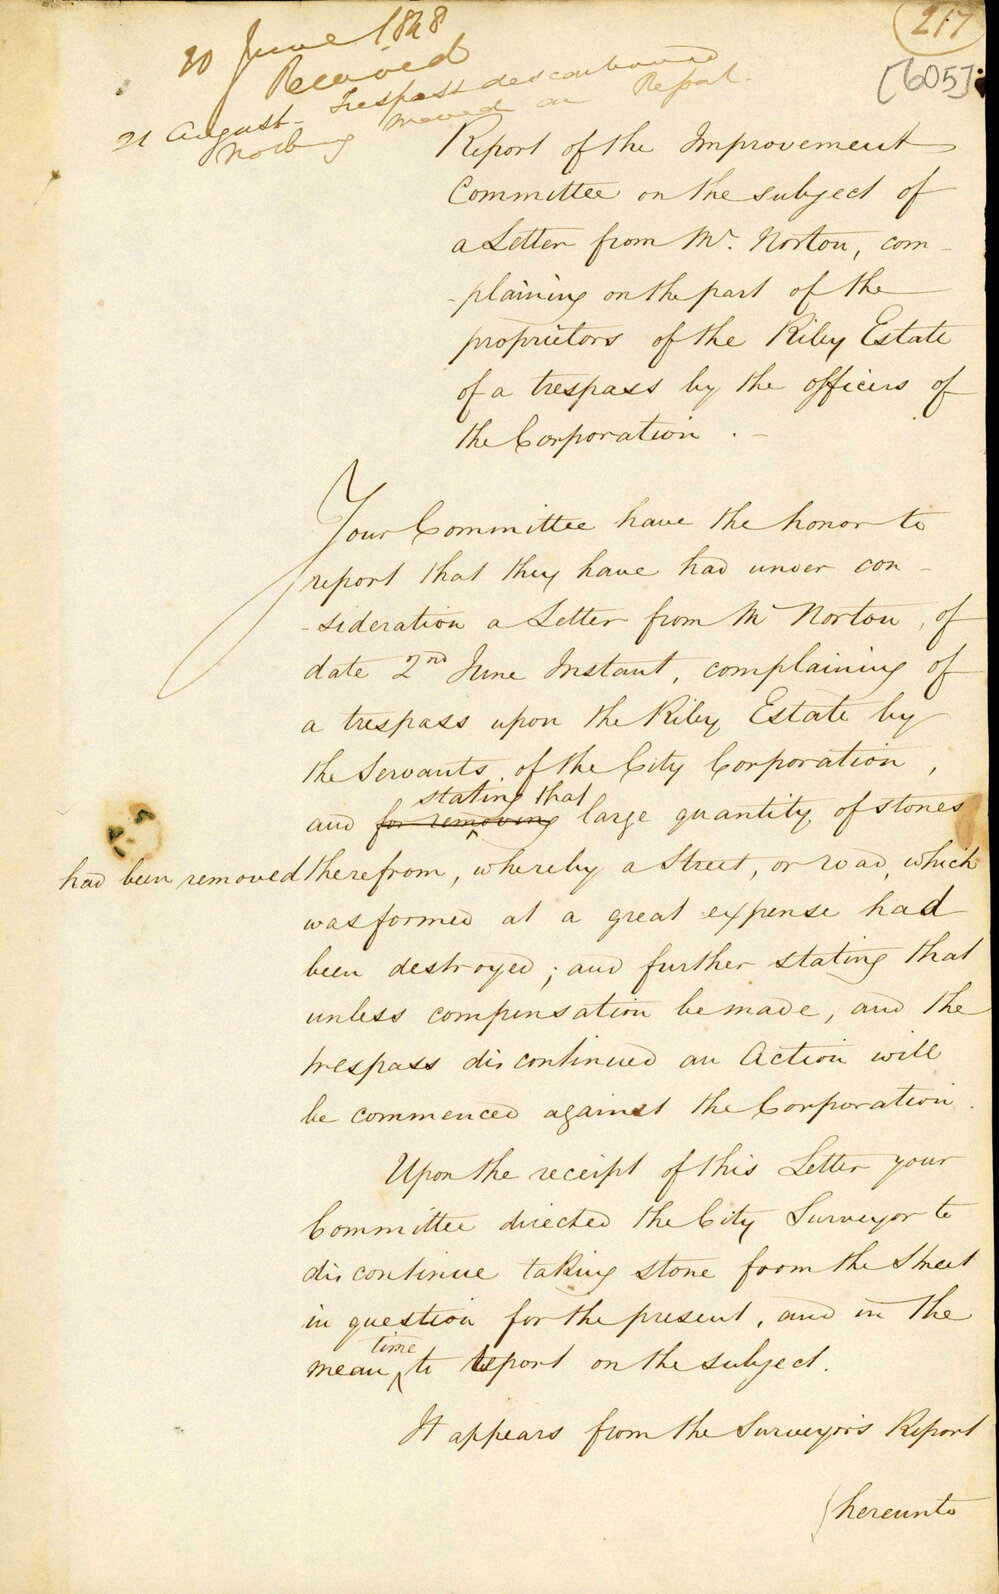 217
[605]
20 June 1848
Received
21 August - Trespass discontinued
Nothing moved on Report.
Report of the Improvement
Committee on the subject of
a Letter from Mr. Norton, com-
-plaining on the part of the
proprietors of the Riley Estate
of a trespass by the officers of
the Corporation. -
Your Committee have the honor to
report that they have had under con-
-sideration a Letter from Mr Norton, of
date 2nd June Instant, complaining of
a trespass upon the Riley Estate by
the Servants of the City Corporation,
stating that
and for removing large quantity of stones
had been removed therefrom, whereby a Street, or road, which
was formed at a great expense had
been destroyed; and further stating that
unless compensation be made, and the
trespass discontinued an Action will
be commenced against the Corporation.
Upon the receipt of this Letter your
Committee directed the City Surveyor to
discontinue taking stone from the Street
in question for the present, and in the
time
mean to report on the subject.
It appears from the Surveyor's Report
hereunto